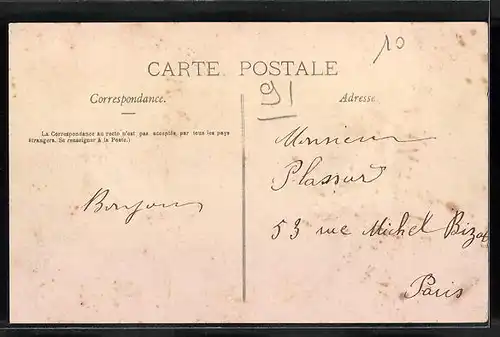 10
CARTE POSTALE
91
Correspondance.
Adresse.
La Correspondance au recto n'est pas acceptée par tous les pays
étrangers. Se renseigner à la Poste.)
Bonjour
Monsieur
53 rue Michel Bizot
Paris